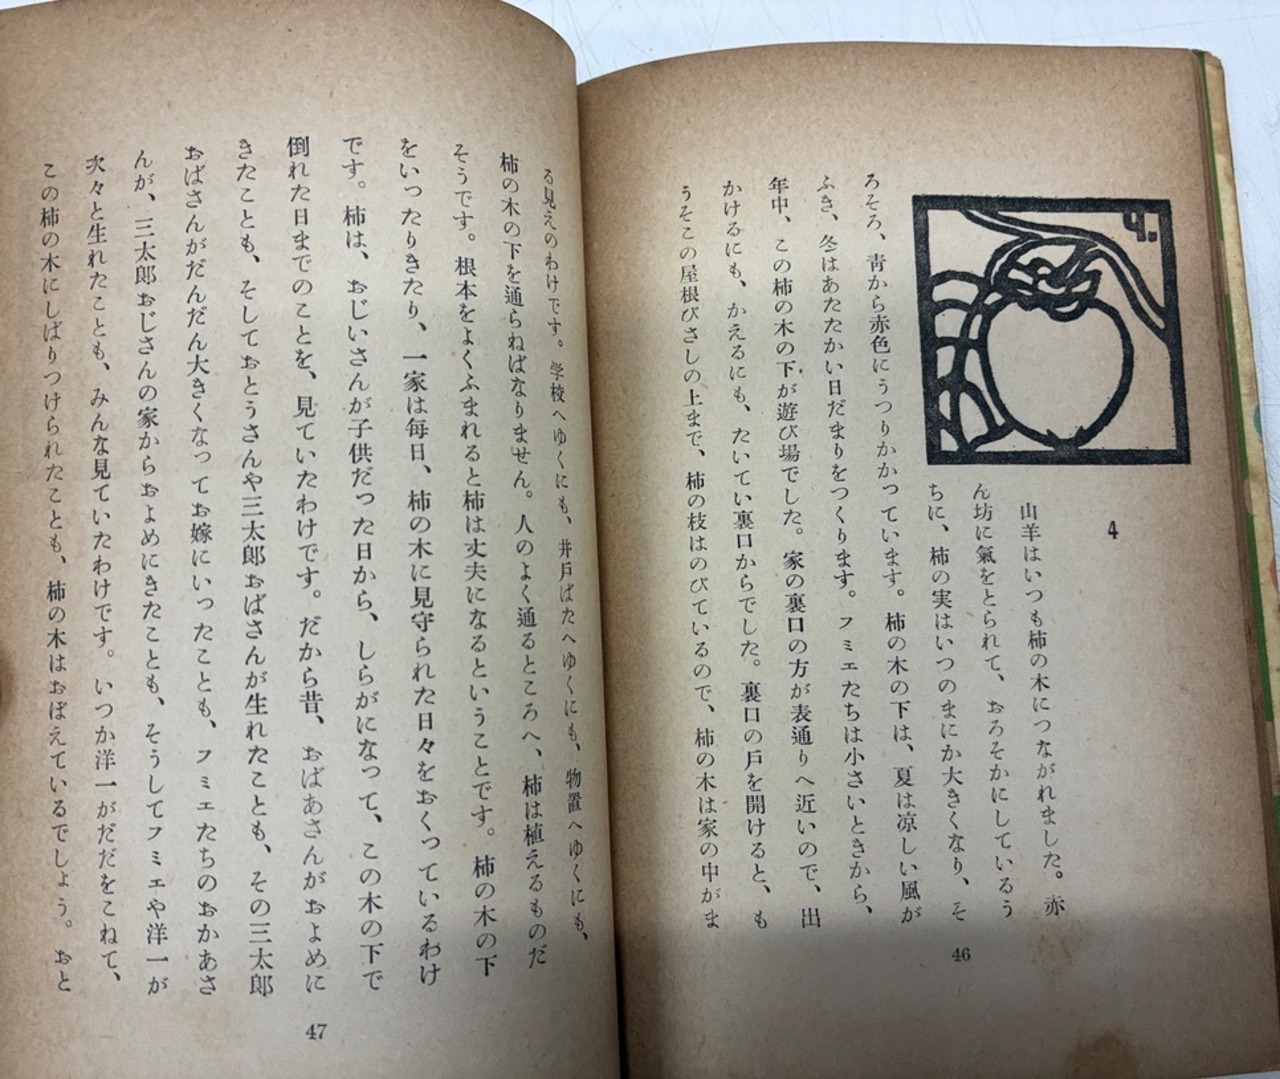 4
山羊はいつも柿の木につながれました。赤
ん坊に氣をとられて、おろそかにしているう
ちに、柿の実はいつのまにか大きくなり、そ
ろそろ、靑から赤色にうつりかかっています。柿の木の下は、夏は凉しい風が
ふき、冬はあたたかい日だまりをつくります。フミエたちは小さいときから、
年中、この柿の木の下が遊び場でした。家の裏口の方が表通りへ近いので、出
かけるにも、かえるにも、たいてい裏口からでした。裏口の戸を開けると、も
うそこの屋根びさしの上まで、柿の枝はのびているので、柿の木は家の中がま
46
る見えのわけです。学校へゆくにも、井戸ばたへゆくにも、物置へゆくにも、
柿の木の下を通らねばなりません。人のよく通るところへ、柿は植えるものだ
そうです。根本をよくふまれると柿は丈夫になるということです。柿の木の下
をいったりきたり、一家は毎日、柿の木に見守られた日々をおくっているわけ
です。柿は、おじいさんが子供だった日から、しらがになって、この木の下で
倒れた日までのことを、見ていたわけです。だから昔、おばあさんがおよめに
きたことも、そしておとうさんや三太郎おばさんが生れたことも、その三太郎
おばさんがだんだん大きくなってお嫁にいったことも、フミエたちのおかあさ
んが、三太郎おじさんの家からおよめにきたことも、そうしてフミエや洋一が
次々と生れたことも、みんな見ていたわけです。いつか洋一がだだをこねて、
この柿の木にしばりつけられたことも、柿の木はおぼえているでしょう。おと
47